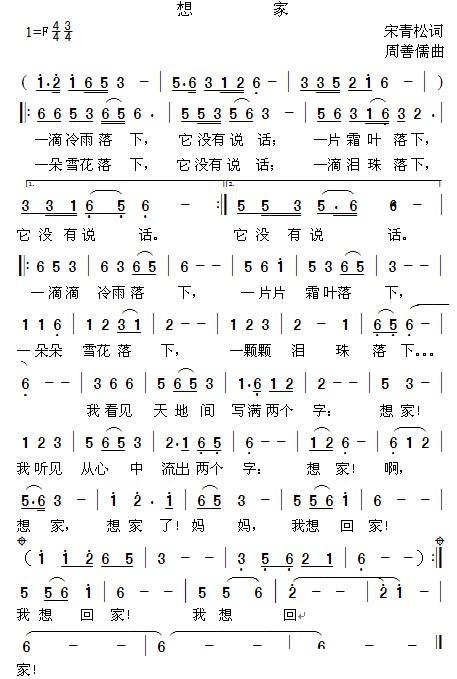 想 家
1=F 4/4 3/4 宋青松词
周善儒曲
( i·2 i 6 5 3 - | 5·6 3 1 2 6 - | 3 3 5 2 1 6 - )
‖: 6 6 5 3 6 5 3 - | 5 5 3 5 6 6 - | 5 6 3 1 6 3 - |
一滴冷雨落 下，它没有说 话；一片霜叶落下，
一朵雪花落 下，它没有说 话；一滴泪珠落下，
1. 2.
3 3 1 6 5 6 - :‖ 5 5 3 5·6 6 - |
它 没 有说 话。 它 没 有说 话。
‖: 6 5 3 | 6 3 6 5 | 6 - - | 5 6 i | 5 3 6 5 | 2 - - |
一滴滴 冷雨落 下，一片片 霜叶落 下，
1 1 6 | 1 2 3 1 | 2 - - | 6 6 5 | 2 - 1 | 6 5 6 - |
一朵朵 雪花落 下，一颗颗 泪 珠 落下。。。
6 - - | 3 6 6 | 5 6 5 3 | 1·6 1 2 | 2 - - | 5 3 - |
我看见 天地间 写满两个 字：想家！
1 2 3 | 5 6 5 3 | 2·1 6 5 | 6 - - | 1 2 6 - | 6 1 2 |
我听见 从心 中 流出两个 字：想 家！啊，
5·6 3 - | i 2· i | 6 5 3 - | 5 5 6 i - |
想 家，想家 了！妈 妈，我想 回 家！
( i i 2 6 5 | 3 - - - | 3 5 6 2 1 | 6 - - - ) :‖
5 5 6 i | 6 - - - | 5 5 6 5 | 2 - - - | 2 i - - |
我 想 回 家！我 想 回
6 - - - | 6 - - - | 6 - - - | 6 - - 0 ‖
家！